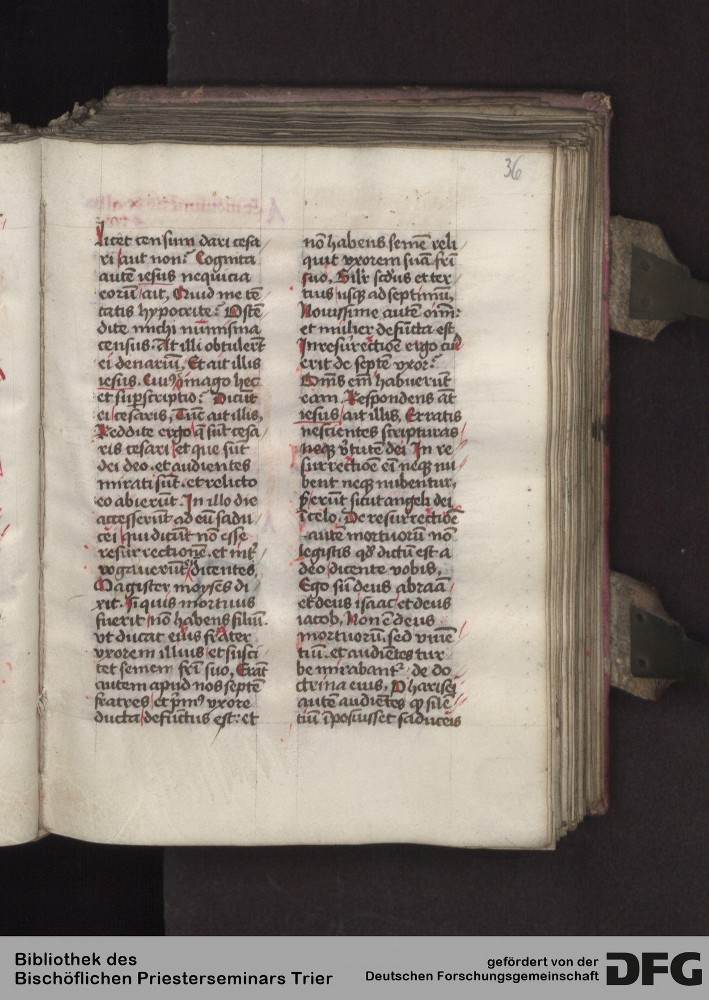 36
licet censum dari cesa
ri aut non? Cognita
autē iesus nequicia
eorū ait, Quid me tē
tatis hypocrite? Ostē
dite michi numisma
census. At illi obtulerūt
ei denariū. Et ait illis
iesus. Cuiꝰ imago hec
et suꝑscriptio? Dicūt
ei cesaris, Tūc ait illis,
Reddite ergo q̄ sūt cesa
ris cesari et que sūt
dei deo. et audientes
mirati sūt. et relicto
eo abierūt. In illo die
accesserūt ad eū sadu
cei qui dicūt nō esse
resurrectionē. et int̄
rogauerūt dicentes,
Magister moyses di
xit. si quis mortuus
fuerit nō habens filiū.
vt ducat eius frater
vxorem illius et susci
tet semen fr̄i suo, Erāt
autem apud nos septē
fratres et pm̄ꝰ vxore
ducta defūctus est: et
nō habens semē reli
quit vxorem suā fr̄i
suo, Silr̄ scd̄us et ter
tius usqꝫ ad septimū,
Nouissime autē oīm:
et mulier defūcta est
In resurrectiōe ergo cuiꝰ
erit de septē vxor?
Om̄s em̄ habuerūt
eam. Respondens āt
iesus ait illis, Erratis
nescientes scripturas
neqꝫ v̄tutē dei In re
surrectiōe eī neqꝫ nu
bent neqꝫ nubentur,
s̄ erūt sicut angeli dei
ī celo. De resurrectiōe
autē mortuorū nō
legistis qd̄ dictū est a
deo dicente vobis,
Ego sū deus abraā
et deus isaac et deus
iacob, Non ē deus
mortuorū. sed viuē
tiū. et audiētes tur
be mirabant̄ de do
ctrina eius, Pharisei
autē audiētes ꝙ silē
tiū īposuisset saduceis
Bibliothek des
Bischöflichen Priesterseminars Trier
gefördert von der
Deutschen Forschungsgemeinschaft
DFG